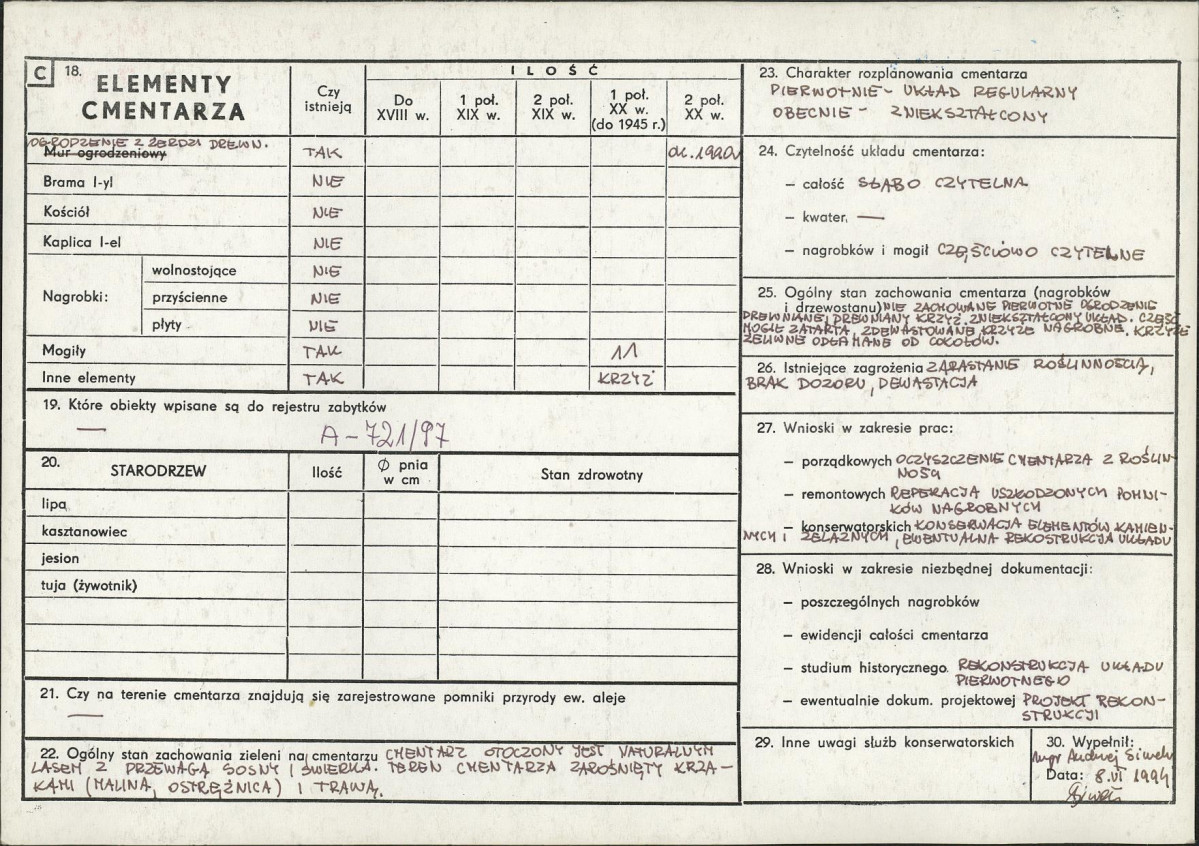 C 18. ELEMENTY CMENTARZA
Czy istnieją
ILOŚĆ
Do XVIII w.
1 poł. XIX w.
2 poł. XIX w.
1 poł. XX w. (do 1945 r.)
2 poł. XX w.
OGRODZENIE Z ŻERDZI DREWN.
Mur ogrodzeniowy TAK ok. 1990
Brama I-yl NIE
Kościół NIE
Kaplica I-el NIE
Nagrobki:
wolnostojące NIE
przyścienne NIE
płyty NIE
Mogiły TAK 11
Inne elementy TAK KRZYŻ
19. Które obiekty wpisane są do rejestru zabytków
— A-721/97
20. STARODRZEW
Ilość
Ø pnia w cm
Stan zdrowotny
lipa
kasztanowiec
jesion
tuja (żywotnik)
21. Czy na terenie cmentarza znajdują się zarejestrowane pomniki przyrody ew. aleje
—
22. Ogólny stan zachowania zieleni na cmentarzu CMENTARZ OTOCZONY JEST NATURALNYM
LASEM Z PRZEWAGĄ SOSNY I ŚWIERKA. TEREN CMENTARZA ZAROŚNIĘTY KRZA-
KAMI (MALINA, OSTRĘŻNICA) I TRAWĄ.
23. Charakter rozplanowania cmentarza
PIERWOTNIE - UKŁAD REGULARNY
OBECNIE - ZNIEKSZTAŁCONY
24. Czytelność układu cmentarza:
— całość SŁABO CZYTELNA
— kwater, —
— nagrobków i mogił CZĘŚCIOWO CZYTELNE
25. Ogólny stan zachowania cmentarza (nagrobków
i drzewostanu) NIE ZACHOWANE PIERWOTNE OGRODZENIE
DREWNIANE, DREWNIANY KRZYŻ, ZNIEKSZTAŁCONY UKŁAD. CZĘŚĆ
MOGIŁ ZATARTA, ZDEWASTOWANE KRZYŻE NAGROBNE. KRZYŻE
ŻELIWNE ODŁAMANE OD COKOŁÓW.
26. Istniejące zagrożenia ZARASTANIE ROŚLINNOŚCIĄ,
BRAK DOZORU, DEWASTACJA
27. Wnioski w zakresie prac:
— porządkowych OCZYSZCZENIE CMENTARZA Z ROŚLIN-
NOŚCI
— remontowych REPERACJA USZKODZONYCH POMNI-
KÓW NAGROBNYCH
— konserwatorskich KONSERWACJA ELEMENTÓW KAMIEN-
NYCH I ŻELAZNYCH, EWENTUALNA REKOSTRUKCJA UKŁADU
28. Wnioski w zakresie niezbędnej dokumentacji:
— poszczególnych nagrobków
— ewidencji całości cmentarza
— studium historycznego REKONSTRUKCJA UKŁADU
PIERWOTNEGO
— ewentualnie dokum. projektowej PROJEKT REKON-
STRUKCJI
29. Inne uwagi służb konserwatorskich
30. Wypełnił:
mgr Andrzej Siwek
Data: 8.VI 1994
Siwek